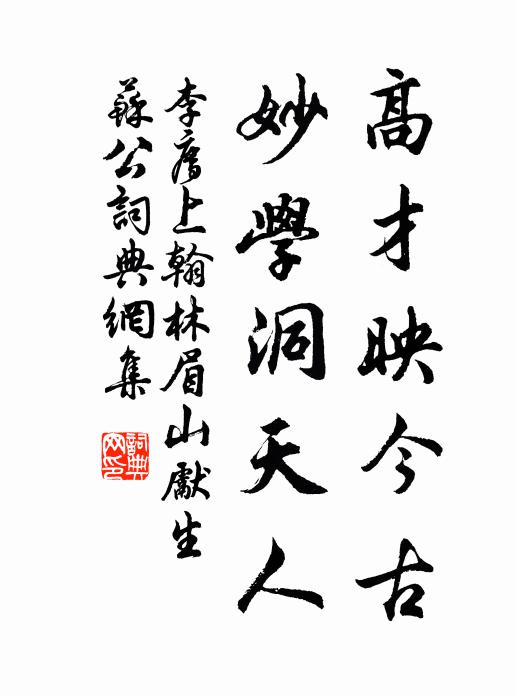 高才映今古
妙學洞天人
李廌上翰林眉山獻生
蘇公詞典網集
詞典網印